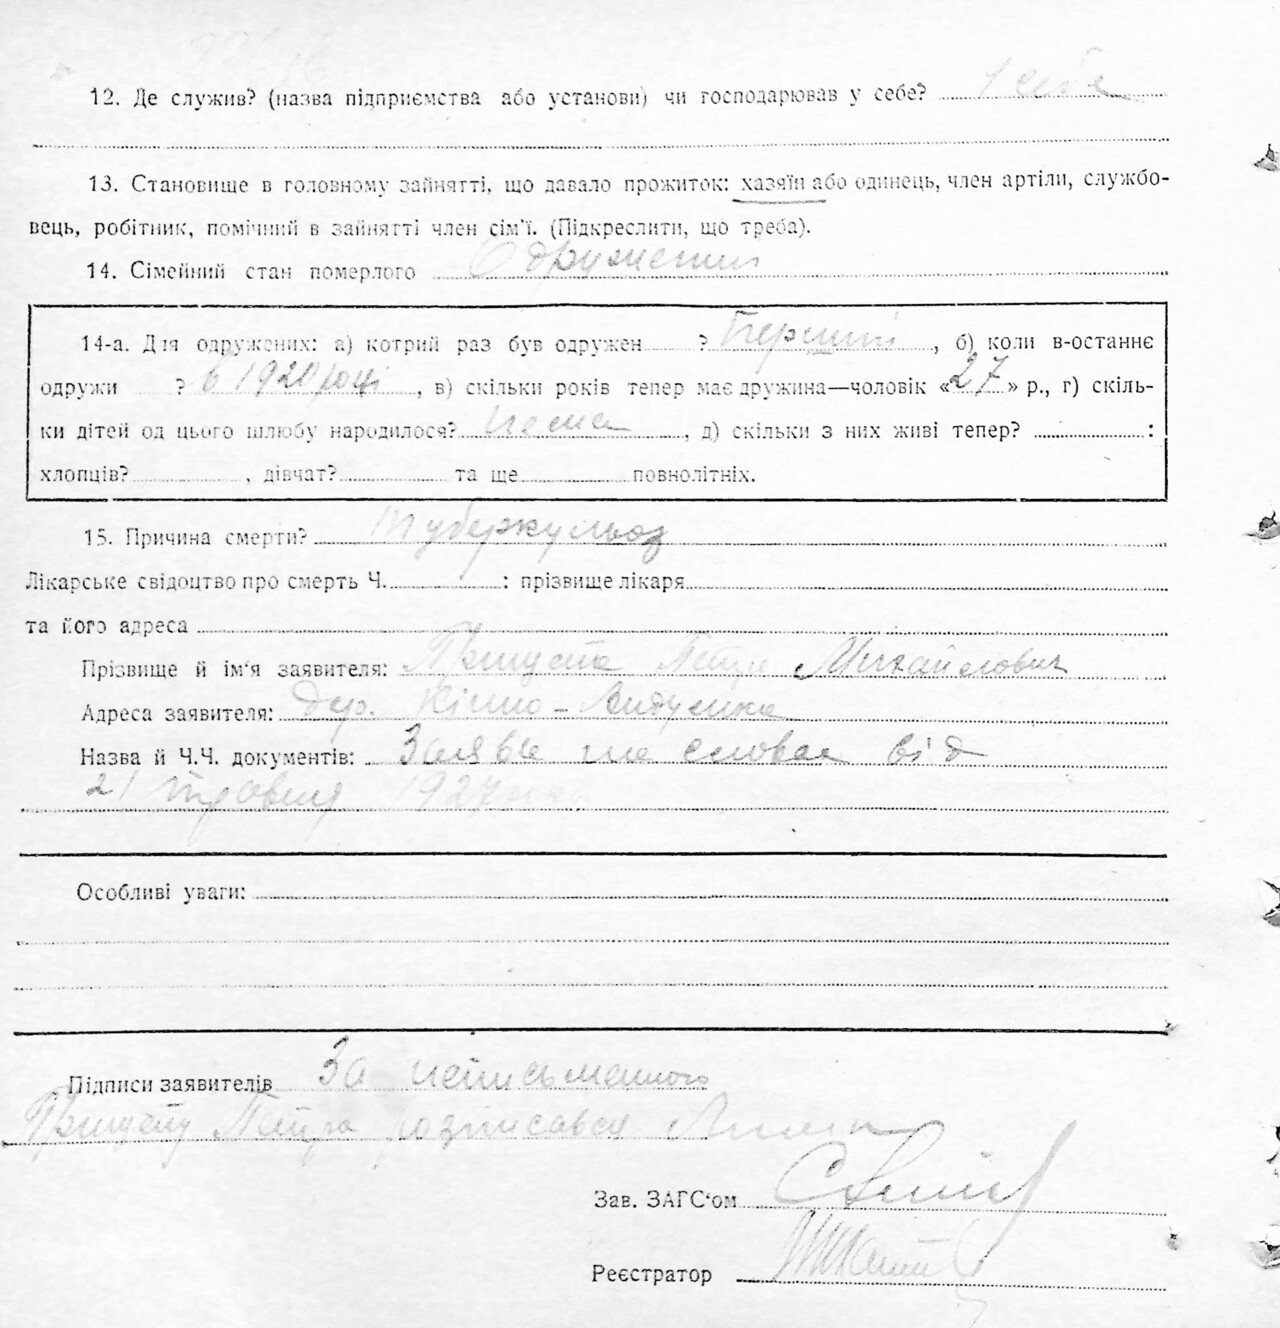 12. Де служив? (назва підприємства або установи) чи господарював у себе? у себе
13. Становище в головному зайнятті, що давало прожиток: хазяїн або одинець, член артіли, службо-
вець, робітник, помічний в зайнятті член сім'ї. (Підкреслити, що треба).
14. Сімейний стан померлого Одружений
14-а. Для одружених: а) котрий раз був одружен ? Перший, б) коли в-останнє
одружи ? в 1920 році, в) скільки років тепер має дружина—чоловік «27» р., г) скіль-
ки дітей од цього шлюбу народилося? Нема, д) скільки з них живі тепер? :
хлопців? , дівчат? та ще повнолітніх.
15. Причина смерти? Туберкульоз
Лікарське свідоцтво про смерть Ч. : прізвище лікаря
та його адреса
Прізвище й ім'я заявителя: Петро Михайлович
Адреса заявителя: дер.
Назва й Ч.Ч. документів: Заява на словах від
21 травня 1927 року
Особливі уваги:
Підписи заявителів За неписьменного
Петра розписався
Зав. ЗАГС'ом
Реєстратор